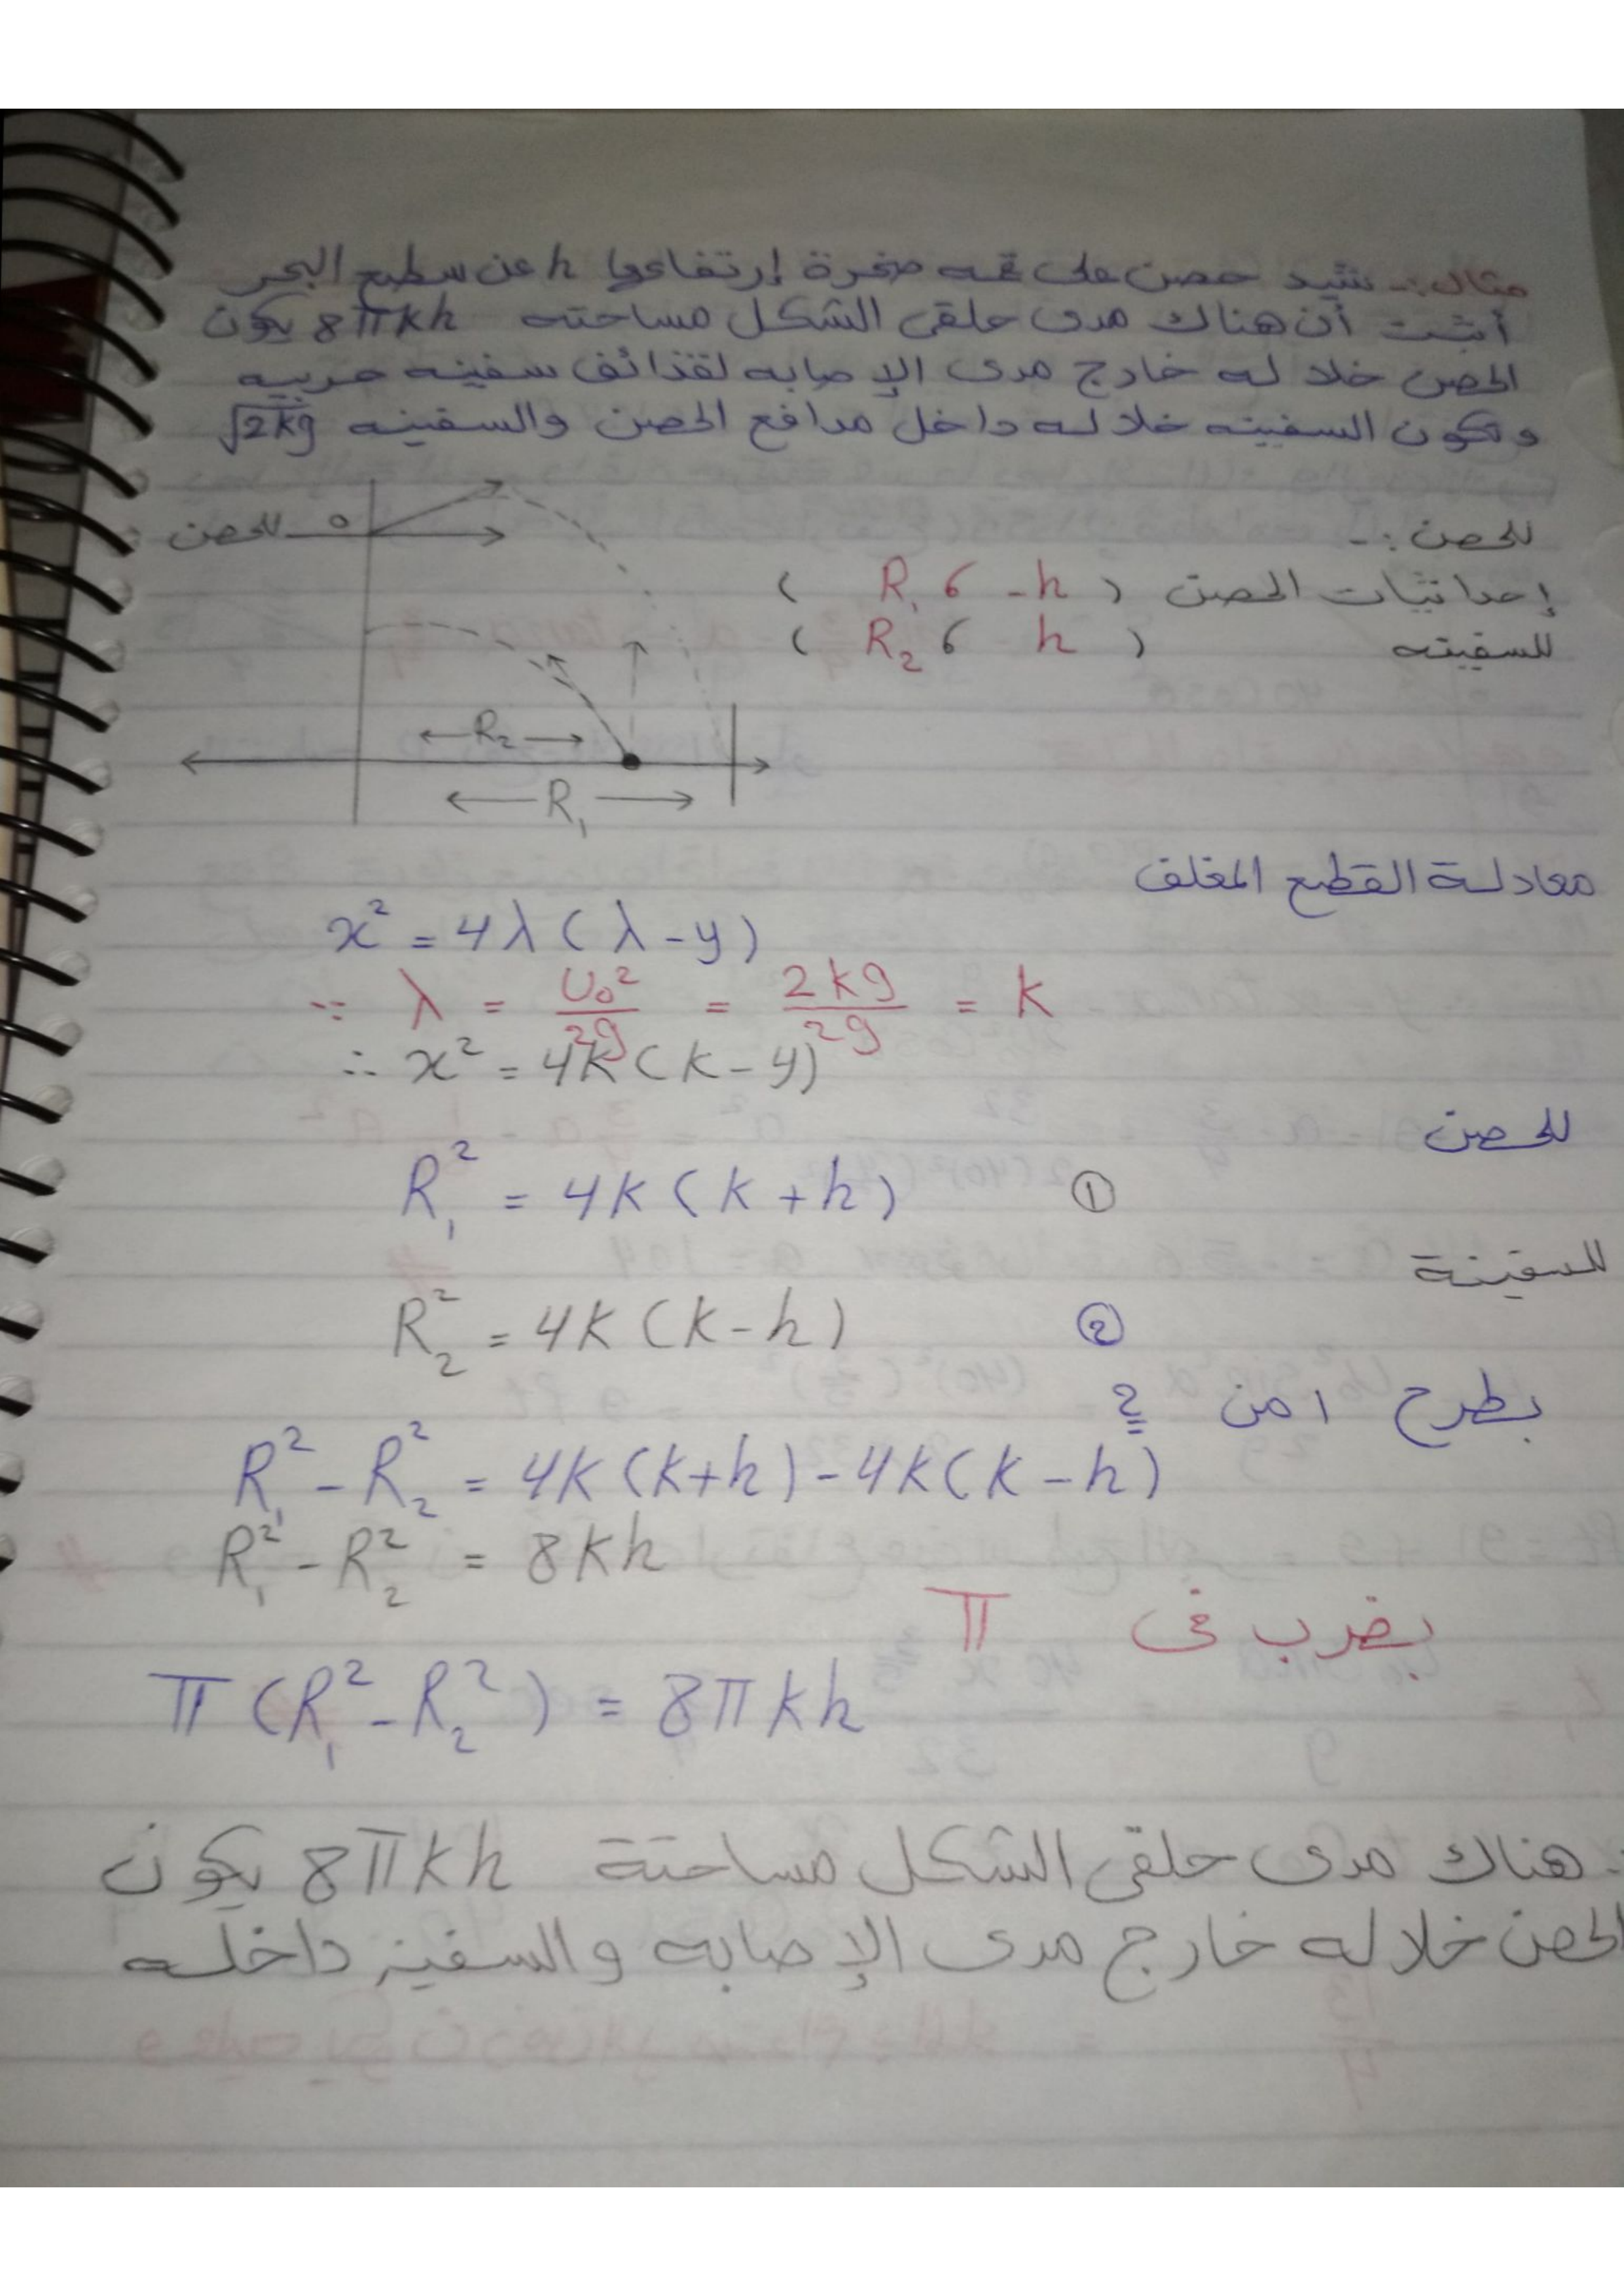 مثال :- شيد حصن على قمه صخرة إرتفاعها h عن سطح البحر
أثبت أن هناك مدى حلقى الشكل مساحته 8πkh يكون
الحصن خلاله خارج مدى الإصابه لقذائف سفينه حربيه
وتكون السفينه خلاله داخل مدافع الحصن والسفينه √2kg
للحصن :-
للحصن o
إحداثيات الحصن ( R₁ , -h )
للسفينه ( R₂ , h )
← R₂ →
← R₁ →
معادلة القطع المغلف
x² = 4λ(λ-y)
∵ λ = U₀²/2g = 2kg/2g = k
∴ x² = 4k(k-y)
للحصن
R₁² = 4k(k+h) ①
للسفينة
R₂² = 4k(k-h) ②
بطرح 1 من 2
R₁² - R₂² = 4k(k+h) - 4k(k-h)
R₁² - R₂² = 8kh
بضرب فى π
π(R₁² - R₂²) = 8πkh
هناك مدى حلقى الشكل مساحتة 8πkh يكون
الحصن خلاله خارج مدى الإصابه والسفينه داخله